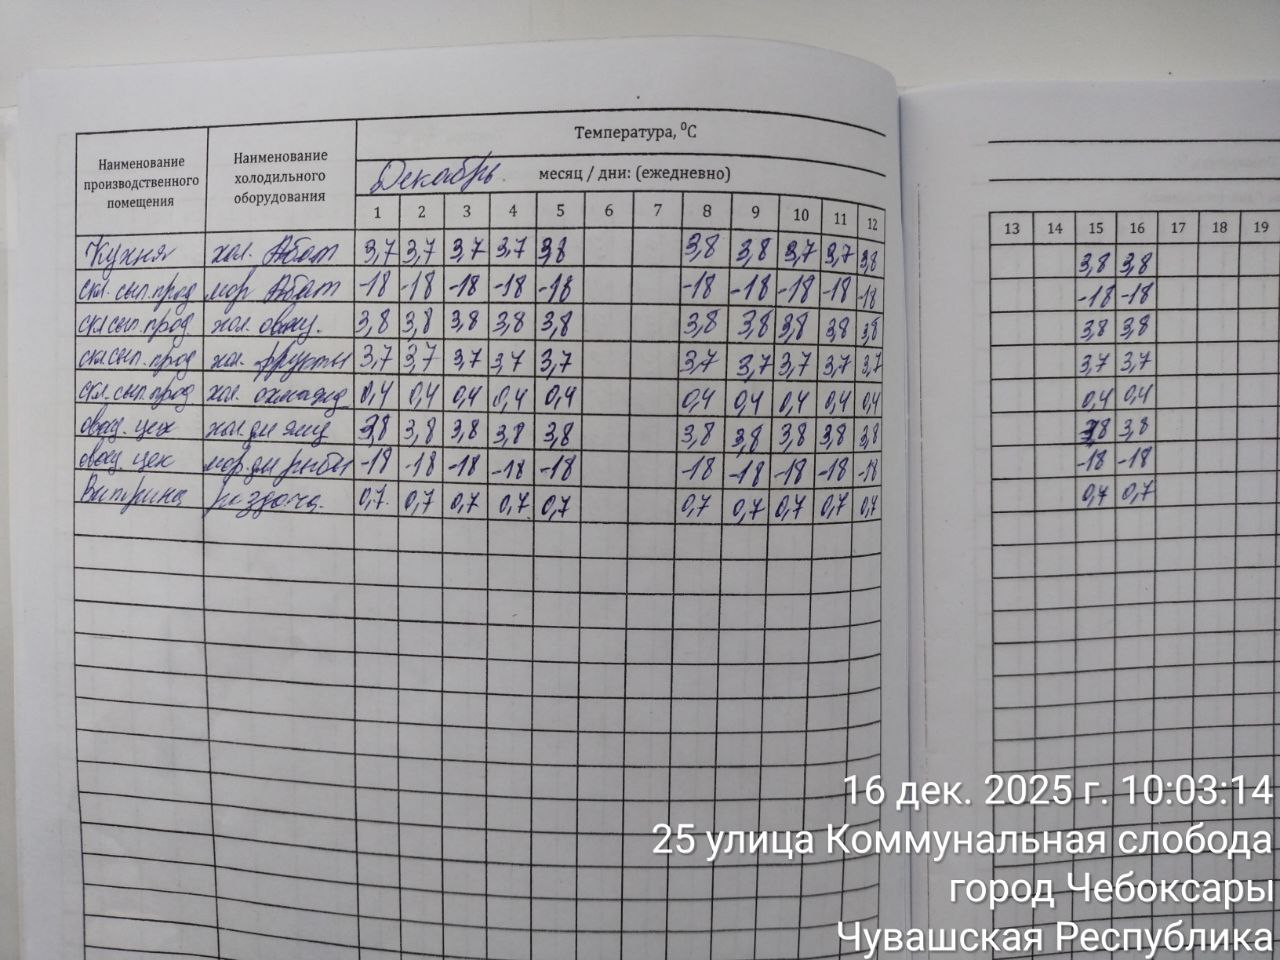 Температура, ⁰С
Наименование производственного помещения
Наименование холодильного оборудования
Декабрь месяц / дни: (ежедневно)
1 2 3 4 5 6 7 8 9 10 11 12 13 14 15 16 17 18 19
Кухня хол. Абат 3,7 3,7 3,7 3,7 3,8 3,8 3,8 3,7 3,7 3,8 3,8 3,8
скл. сып. прод мор Абат -18 -18 -18 -18 -18 -18 -18 -18 -18 -18 -18 -18
скл сып. прод. хол. овощ. 3,8 3,8 3,8 3,8 3,8 3,8 3,8 3,8 3,8 3,8 3,8 3,8
скл сып. прод хол. фрукты 3,7 3,7 3,7 3,7 3,7 3,7 3,7 3,7 3,7 3,7 3,7 3,7
скл. сып. прод хол. 0,4 0,4 0,4 0,4 0,4 0,4 0,4 0,4 0,4 0,4 0,4 0,4
овощ. цех хол. для яиц 3,8 3,8 3,8 3,8 3,8 3,8 3,8 3,8 3,8 3,8 3,8 3,8
овощ. цех мор. для рыбы -18 -18 -18 -18 -18 -18 -18 -18 -18 -18 -18 -18
Витрина раздача. 0,7 0,7 0,7 0,7 0,7 0,7 0,7 0,7 0,7 0,7 0,7 0,7
16 дек. 2025 г. 10:03:14
25 улица Коммунальная слобода
город Чебоксары
Чувашская Республика